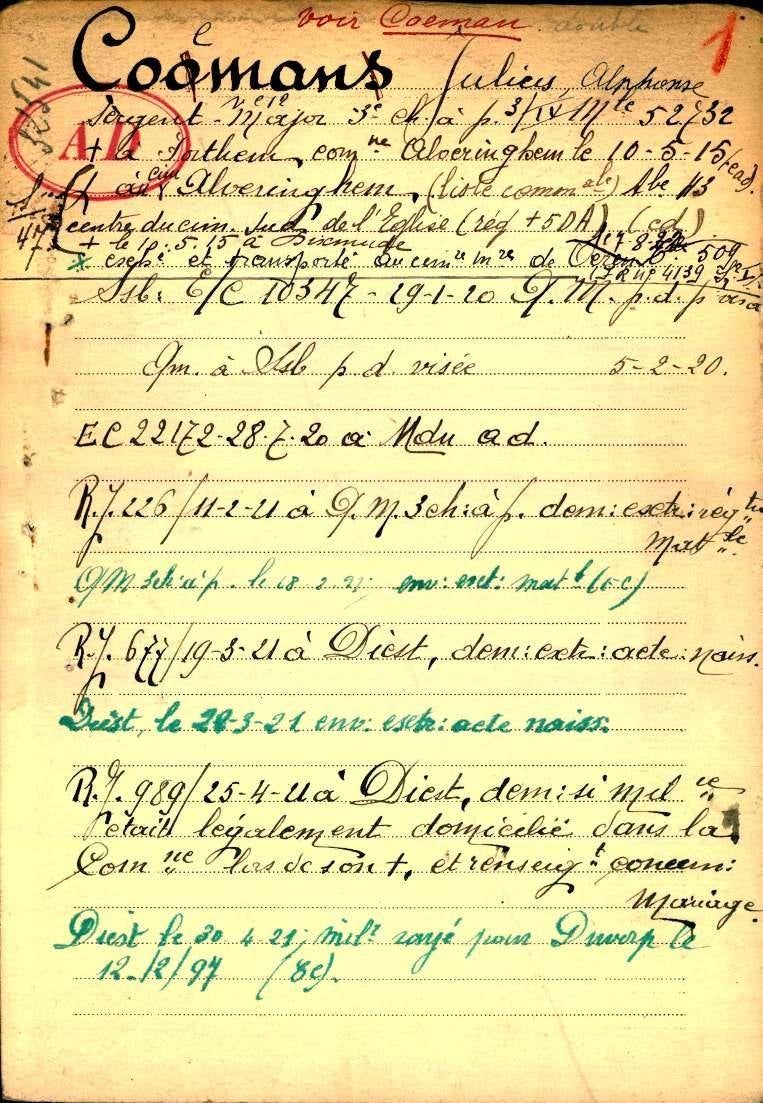 voir Coeman double
1
Coomans Julien, Alphonse
e
32541
Sergent-Major 3e ch. à p. 3/IX Mle 52732
A.D
+ à Forthem, comne Alveringhem le 10-5-15 (cad)
au cim Alveringhem, (liste commale) tbe 113
centre du cim. sud de l'Eglise (rég + 5DA) (cd)
47
+ le 10.5.15 à Dixmude le 7-8-
+ exhé et transporté au cimre mre de 509
4139
Ssb: E/C 10347-19-1-20 Q.M. p.d.p visa
Qm. à Ssb p.d. visée 5-2-20.
EC 22172-28-7-20 à Mdu a d.
R.J. 226/11-2-21 à Q.M. 3 ch: à p. dem: extr: rég tre
Matle.
QM 3ch: à p. le 18 2 21: env: ext: matl (1-c)
R.J. 677/19-3-21 à Diest, dem: extr: acte: naiss.
Diest, le 28-3-21 env: extr: acte naiss.
R.J. 989/25-4-21 à Diest, dem: si mil re
était légalement domicilié dans la
Comne lors de son +, et renseigt concern:
Mariage.
Diest le 30 4 21; milre rayé pour le
12-12/97 (8c).